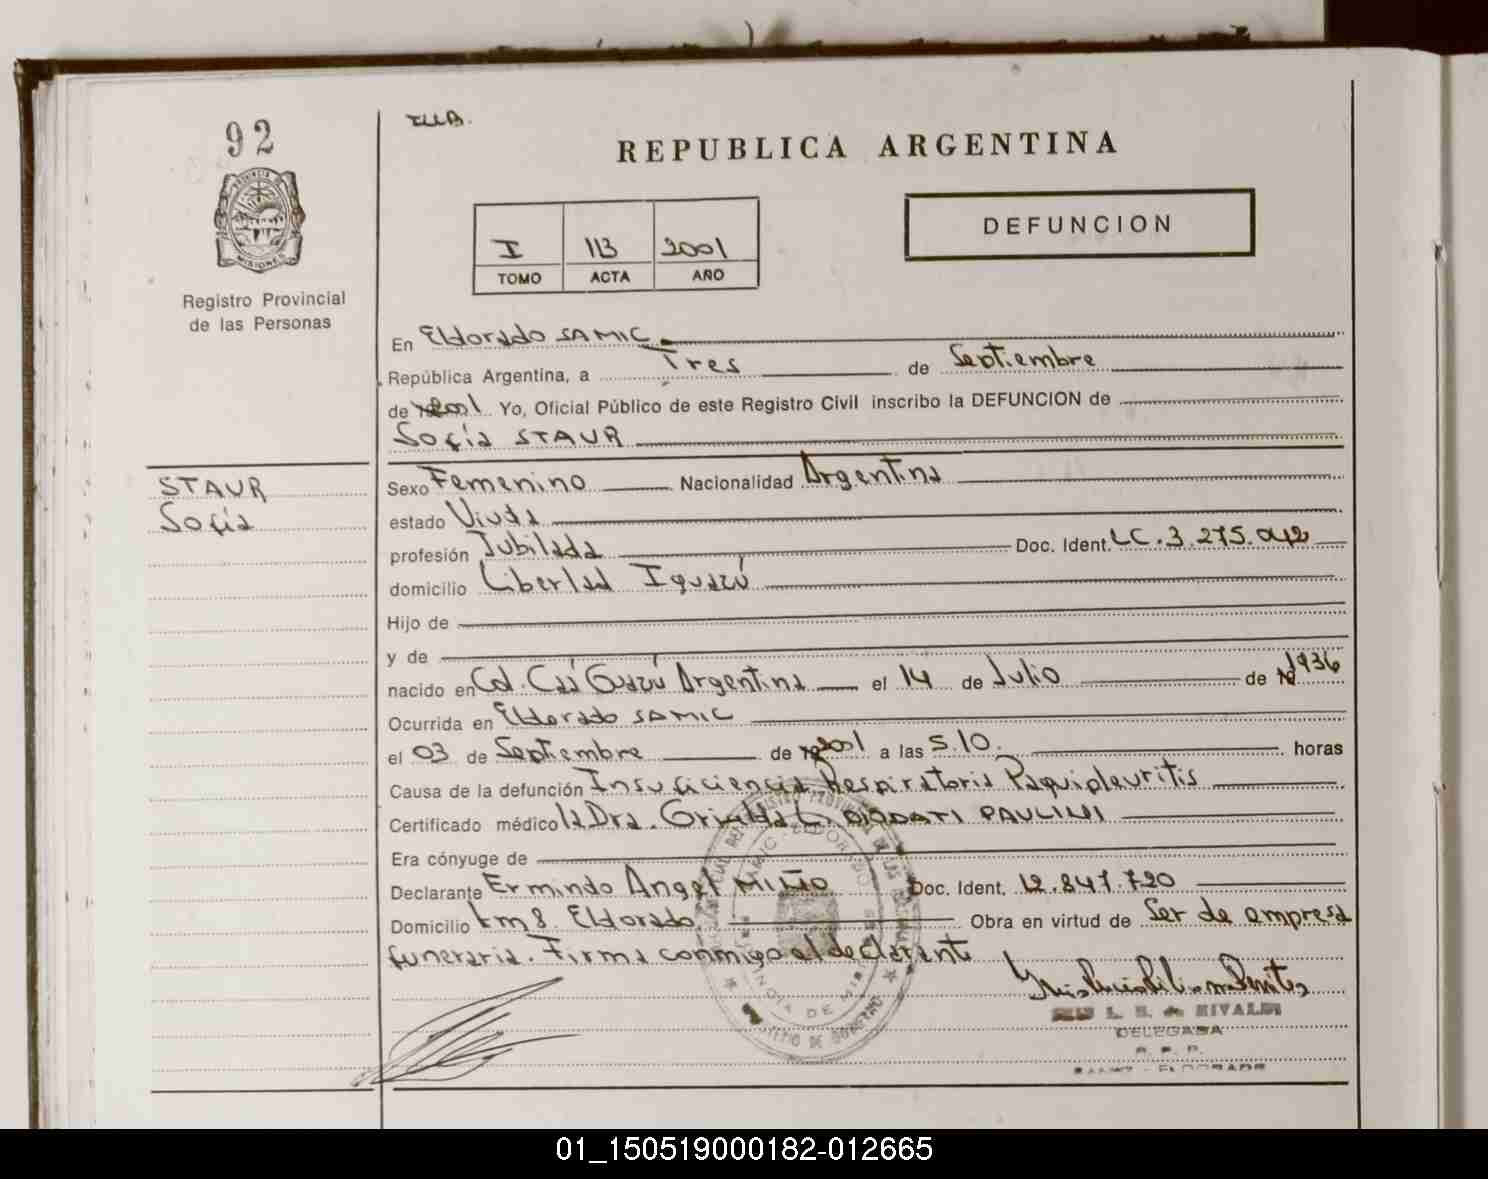 92
REPUBLICA ARGENTINA
PROVINCIA DE
MISIONES
Registro Provincial
de las Personas
I 113 2001
TOMO ACTA AÑO
DEFUNCION
En Eldorado SAMIC
República Argentina, a Tres de Septiembre
de 2001 Yo, Oficial Público de este Registro Civil inscribo la DEFUNCION de
Sofía STAUR
STAUR
Sofía
Sexo Femenino Nacionalidad Argentina
estado Viuda
profesión Jubilada Doc. Ident. LC. 3.275.042
domicilio Libertad Iguazú
Hijo de
y de
nacido en Col. Caá Guazú Argentina el 14 de Julio de 1936
Ocurrida en Eldorado SAMIC
el 03 de Septiembre de 2001 a las 5.10. horas
Causa de la defunción Insuficiencia Respiratoria Paquipleuritis
Certificado médico la Dra. Griselda G. DIODATI PAULINI
Era cónyuge de
Declarante Ermindo Angel MIÑO Doc. Ident. 12.847.720
Domicilio km 8. Eldorado Obra en virtud de Ser de empresa
funeraria. Firma conmigo el declarante
L. B. de RIVALDI
DELEGADA
R. P. P.
SAMIC - ELDORADO
01_150519000182-012665